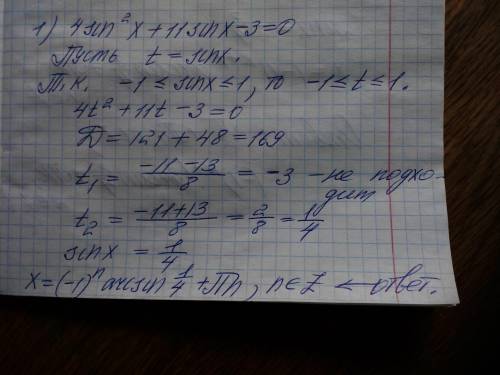 1) 4sin²x + 11sinx - 3 = 0
Пусть t = sinx.
Т.к. -1 ≤ sinx ≤ 1, то -1 ≤ t ≤ 1.
4t² + 11t - 3 = 0
Д = 121 + 48 = 169
t₁ = (-11 - 13)/8 = -3 - не подхо-
дит
t₂ = (-11 + 13)/8 = 2/8 = 1/4
sinx = 1/4
x = (-1)ⁿ arcsin 1/4 + Пn, n ∈ Z ← ответ.